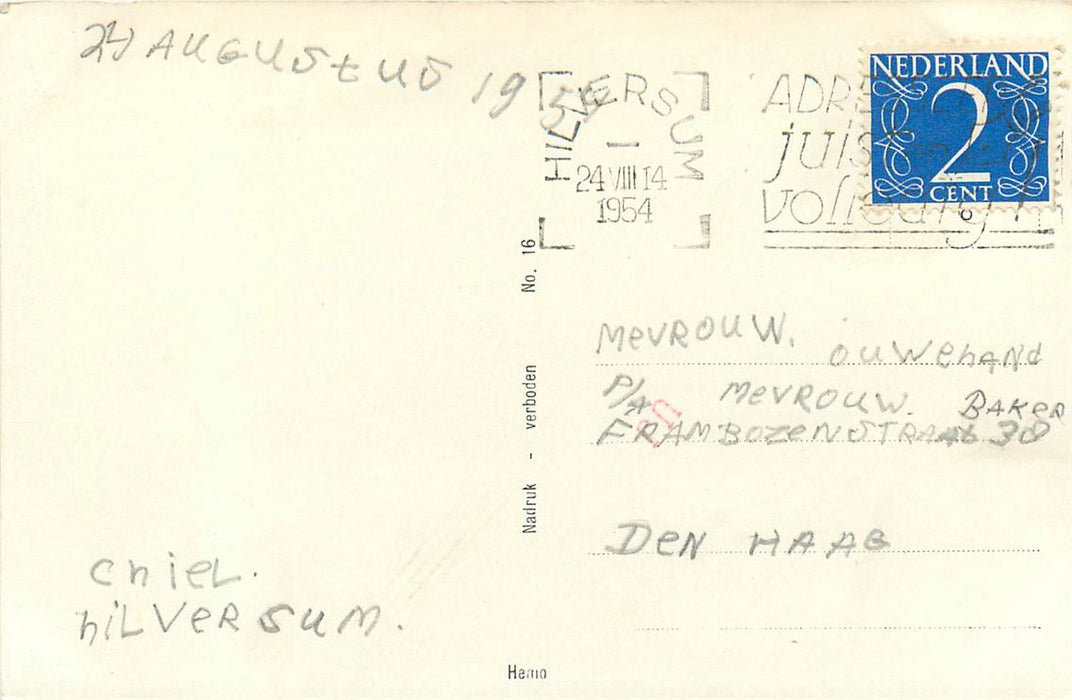 24 AUGUSTUS 1954
HILVERSUM
24 VIII 14
1954
NEDERLAND
2
CENT
No. 16
Nadruk - verboden
MEVROUW. OUWEHAND
P/A MEVROUW. BAKER
FRAMBOZENSTRAAT 38
DEN HAAG
CHIEL.
HILVERSUM.
Hemo